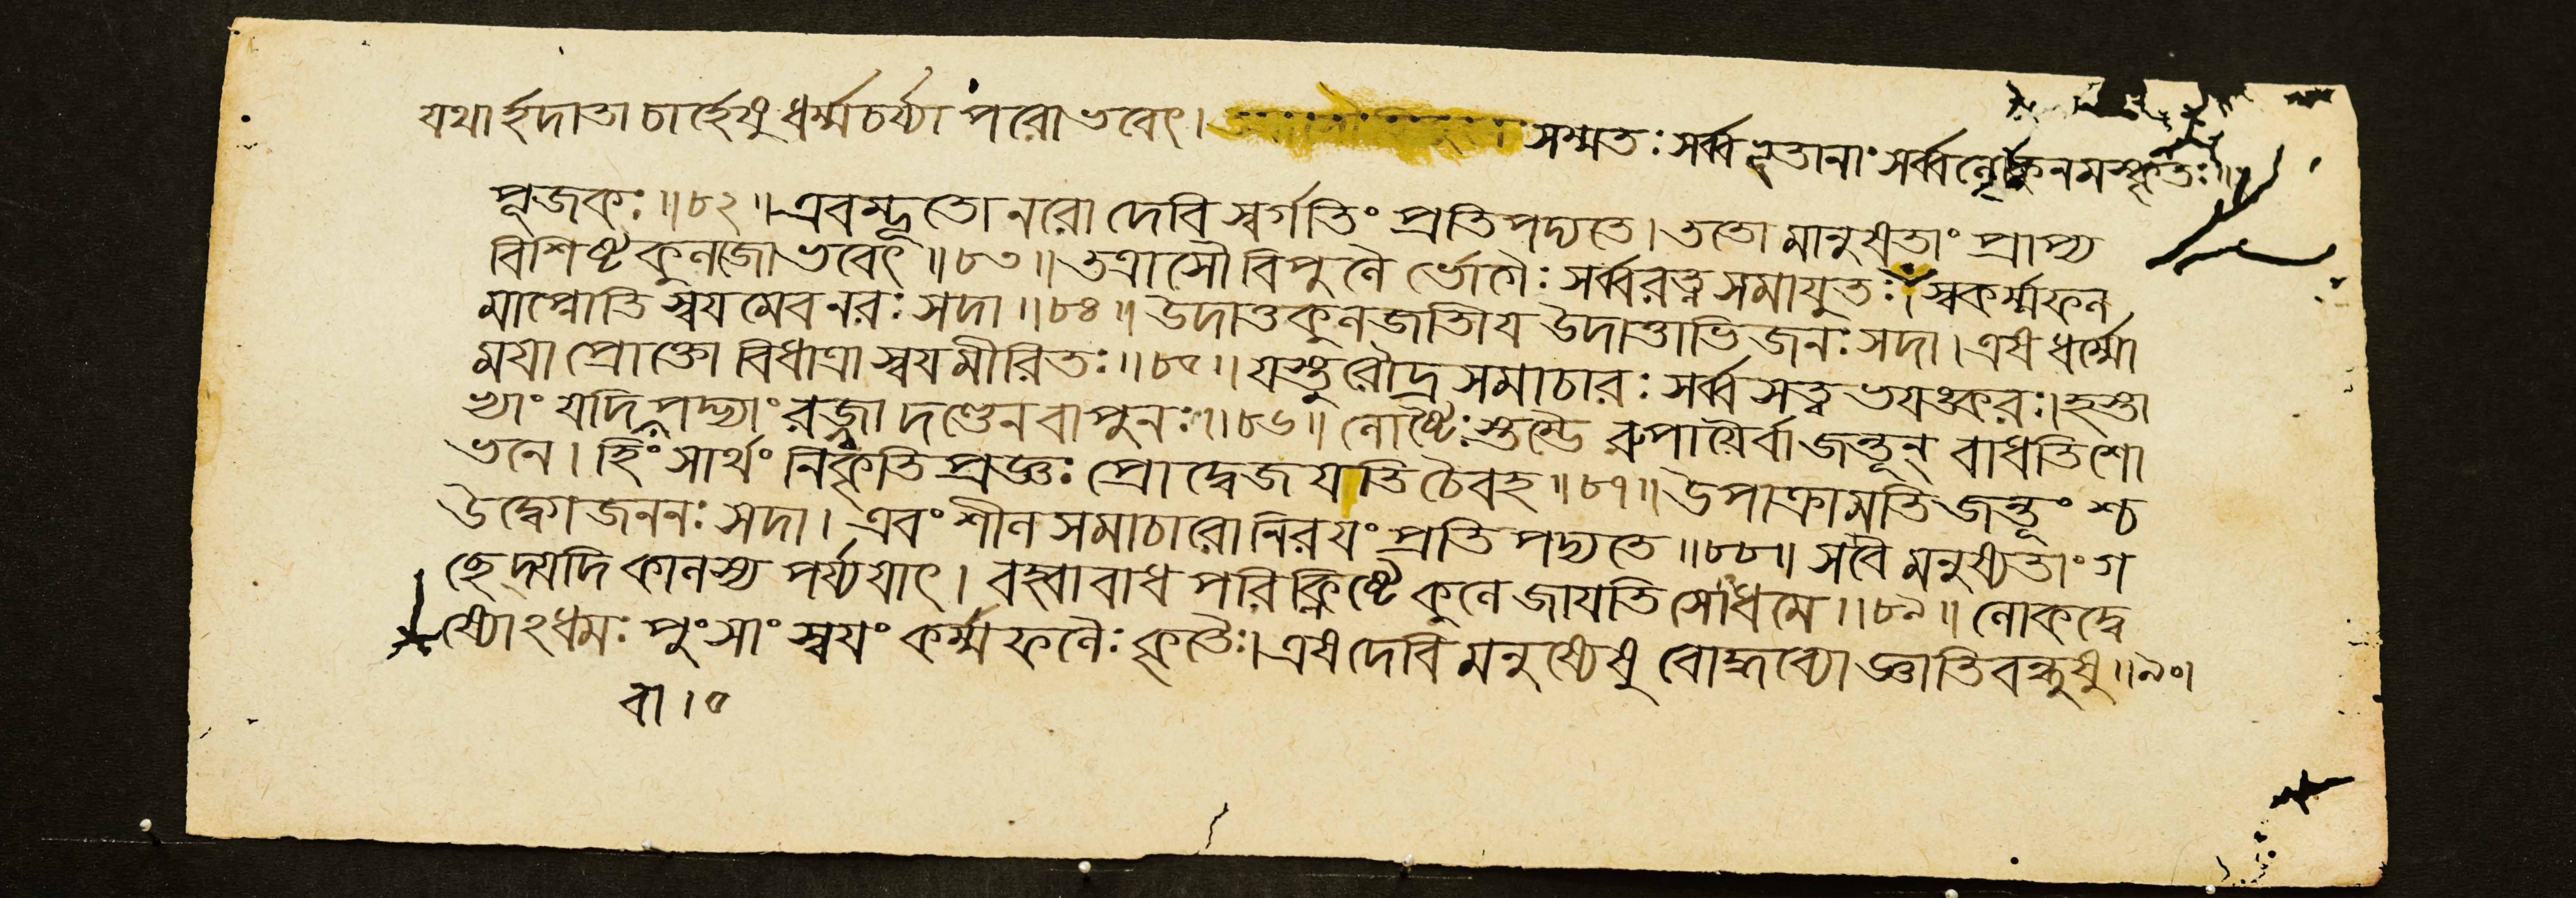 যথার্হদাতা চার্হেষু ধর্ম্মচর্য্যা পরো ভবেৎ। সম্মতঃ সর্ব্বভূতানাং সর্ব্বলোকনমস্কৃতঃ॥
পূজকঃ॥৮২॥ এবম্ভূতো নরো দেবি স্বর্গতিং প্রতিপদ্যতে। ততো মানুষতাং প্রাপ্য
বিশিষ্টকুলজো ভবেৎ॥৮৩॥ তত্রাসৌ বিপুলৈ র্ভোগৈঃ সর্ব্বরত্নসমাযুতঃ। স্বকর্ম্মফল
মাপ্নোতি স্বযমেব নরঃ সদা॥৮৪॥ উদাত্তকুলজাতীয উদাত্তাভিজনঃ সদা। এষ ধর্ম্মো
মযা প্রোক্তো বিধাত্রা স্বযমীরিতঃ॥৮৫॥ যস্তু রৌদ্রসমাচারঃ সর্ব্বসত্ত্বভযঙ্করঃ। হস্তা
ভ্যাং যদি পদ্ভ্যাং রজ্জ্বা দণ্ডেন বা পুনঃ॥৮৬॥ লোষ্টৈঃ স্তম্ভৈ রুপাযৈর্বা জন্তূন্ বাধতি শো
ভনে। হিংসার্থং নিকৃতিপ্রজ্ঞঃ প্রোদ্বেজযতি চৈবহ॥৮৭॥ উপাক্রামতি জন্তূংশ্চ
উদ্বেগজননঃ সদা। এবং শীলসমাচারো নিরযং প্রতিপদ্যতে॥৮৮॥ স বৈ মনুষ্যতাং গ
চ্ছেদ্যদি কালস্য পর্য্যযাৎ। বহ্বাবাধ পরিক্লিষ্টে কুলে জাযতি সোধমে॥৮৯॥ লোকদ্বে
ষ্যোঽধমঃ পুংসাং স্বযং কর্ম্মফলৈঃ কৃতৈঃ। এষ দেবি মনুষ্যেষু বোদ্ধব্যো জ্ঞাতিবন্ধুষু॥৯০।
বা।৫